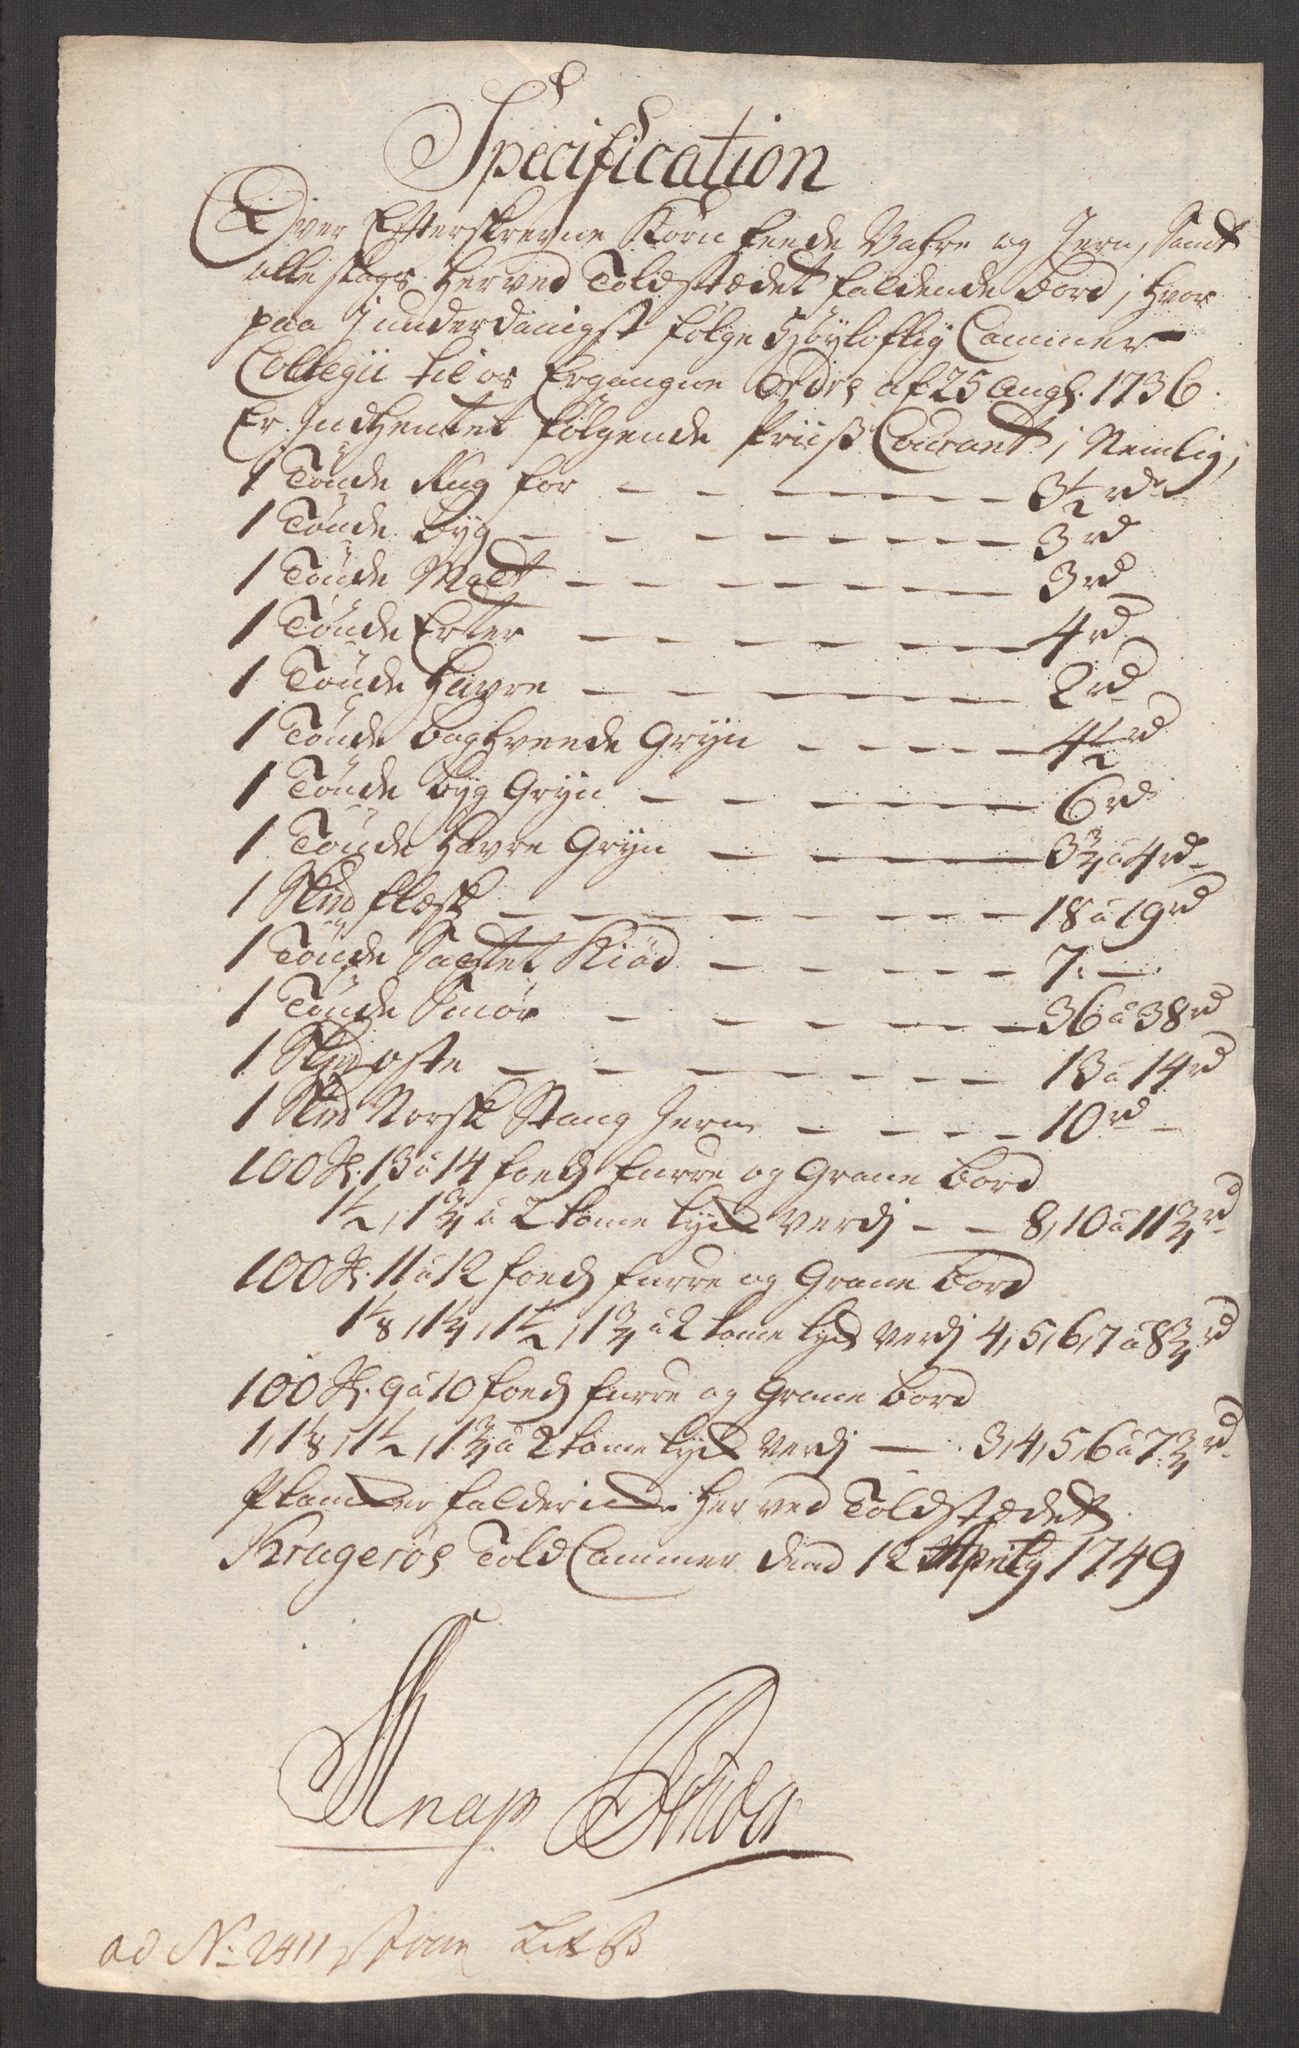 Specification
Over Efterskrevne Korn Feede Vahre og Jern, Samt
alle slags her ved Toldstædet faldende bord, hvor
paa I underdanigst følge Høyloflig Cammer
Collegii til os Ergangne Ordre af 25 Augs. 1736.
Er Indhentet følgende Priiss Courant, Nemlig,
1 Tønde Rug for - - - 3½ rd
1 Tønde byg - - - 3 rd
1 Tønde Malt - - - 3 rd
1 Tønde Erter - - - 4 rd
1 Tønde Havre - - - 2 rd
1 Tønde boghvede Gryn - - - 4½ rd
1 Tønde byg Gryn - - - 6 rd
1 Tønde Havre Gryn - - - 3¾ a 4 rd
1 Skpd flæsk - - - 18 a 19 rd
1 Tønde Saltet Kiød - - - 7. -
1 Tønde Smør - - - 36 a 38 rd
1 Skpd oste - - - 13 a 14 rd
1 Skpd Norsk Stang Jern - - - 10 rd -
100 St. 13 a 14 foeds furre og Grane bord
1½, 1¾ a 2 tome tyck Verdj - - 8, 10 a 11¾ rd
100 St. 11 a 12 foeds furre og Grane bord
1⅛, 1¼, 1½, 1¾ a 2 tome tyck Verdj 4, 5, 6, 7 a 8¾ rd
100 St. 9 a 10 foeds furre og Grane bord
1, 1⅛, 1½, 1¾ a 2 tome tyck Verdj - 3, 4, 5, 6 a 7¾ rd
Plancker falder icke her ved Toldstædet.
Kragerøes Told Cammer dend 12 Aprily 1749
Knap
ad No. 2411 Litr B